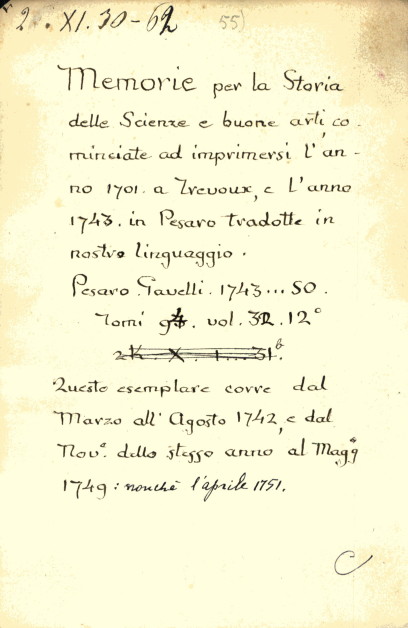 2. XI. 30-62 55)
Memorie per la Storia
delle Scienze e buone arti, co-
minciate ad imprimersi l'an-
no 1701. a Trevoux, e l'anno
1743. in Pesaro tradotte in
nostro linguaggio.
Pesaro. Gavelli. 1743...50.
Tomi vol. 32. 12°
Questo esemplare corre dal
Marzo all'Agosto 1742, e dal
Nov.e dello stesso anno al Magg°
1749: nonchè l'aprile 1751.
C